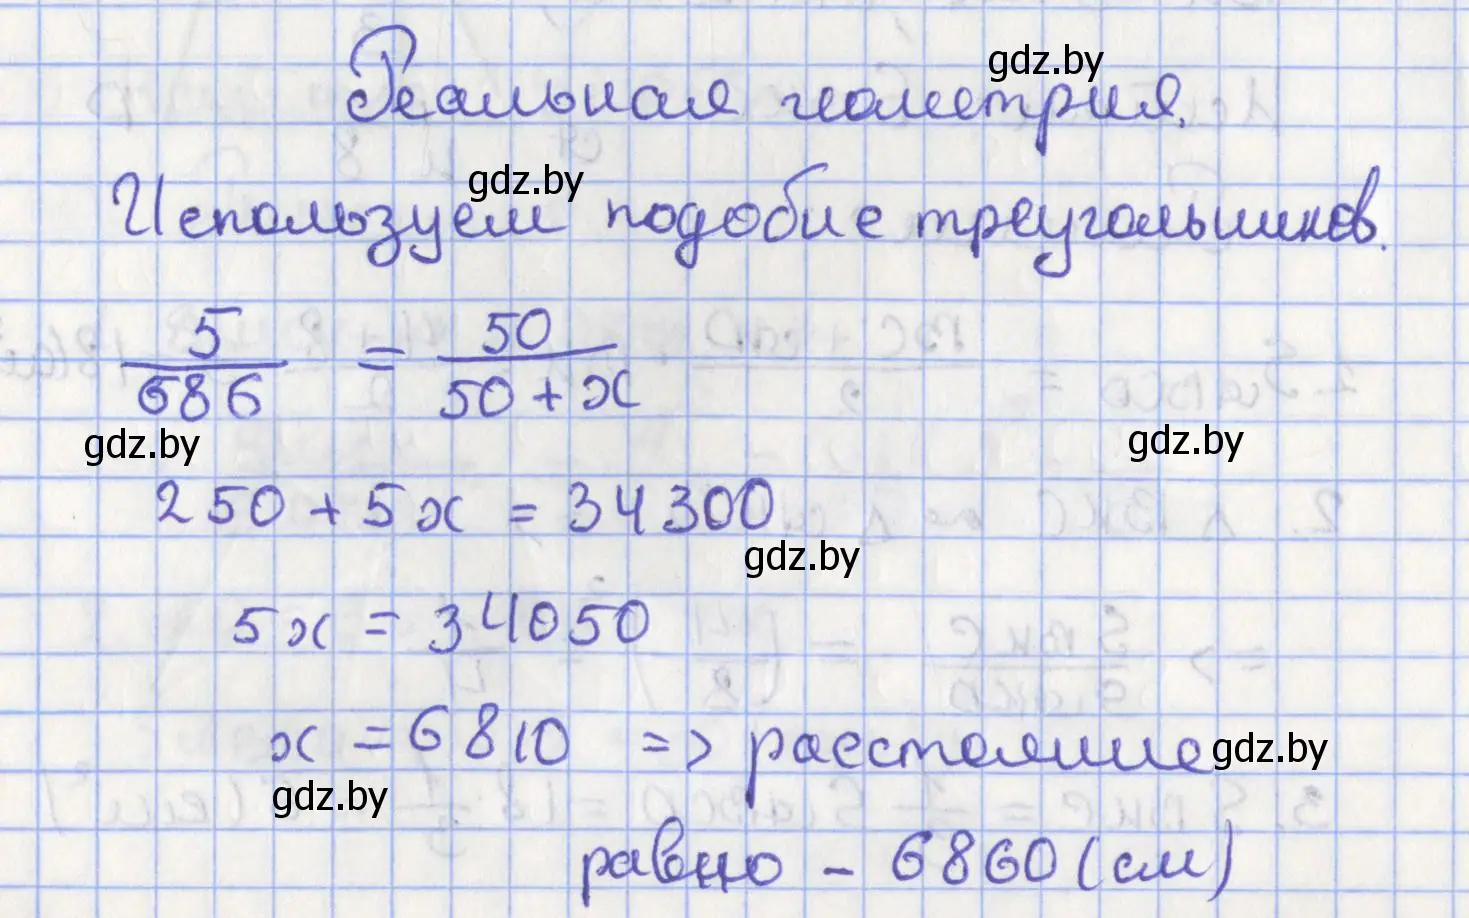 Реальная геометрия.
gdz.by
Используем подобие треугольников.
gdz.by
5/686 = 50/(50 + x)
gdz.by
gdz.by
250 + 5x = 34300
gdz.by
5x = 34050
x = 6810 => расстояние
gdz.by
gdz.by
равно - 6860 (см)